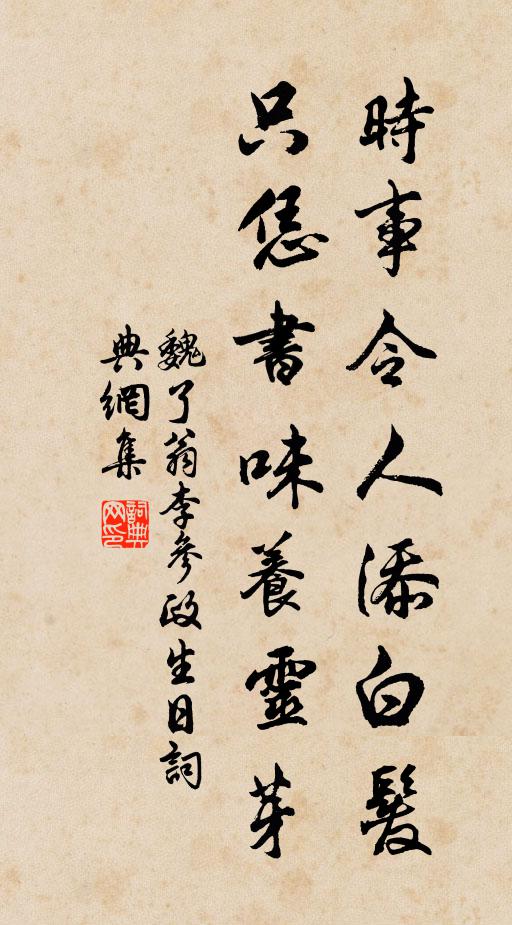 時事令人添白髮
只恁書味養靈芽
魏了翁李參政生日詞
典網集
詞典網印